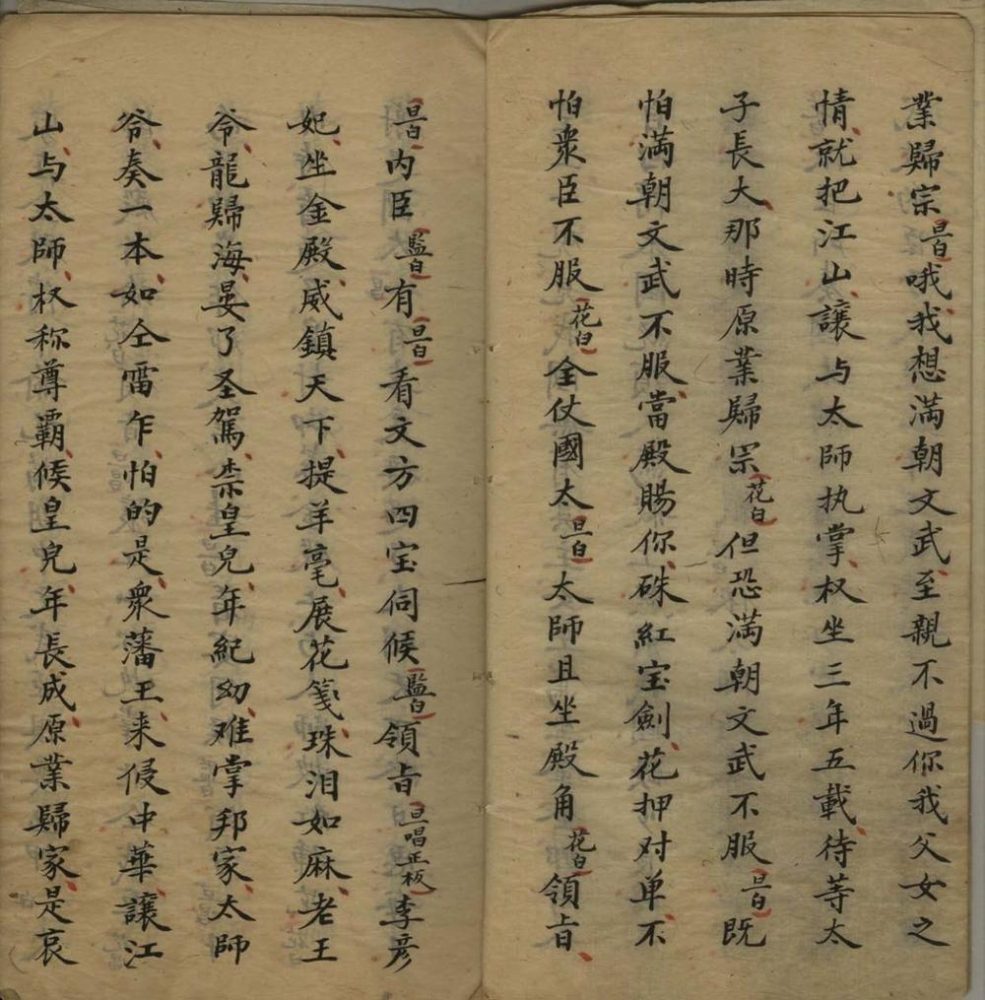 業歸宗旦白哦我想滿朝文武至親不過你我父女之
情就把江山讓与太師执掌权坐三年五載待等太
子長大那時原業歸宗花白但恐滿朝文武不服旦白既
怕滿朝文武不服當殿賜你硃紅宝劍花押对单不
怕衆臣不服花白全仗國太旦白太師且坐殿角花白領旨
旦白内臣監白有旦白看文方四宝伺候監白領旨旦唱正板李彦
妃坐金殿威鎮天下提羊毫展花箋珠泪如麻老王
爷龍歸海晏了圣駕柰皇兒年紀幼难掌邦家太師
爷奏一本如仝雷乍怕的是衆藩王来侵中華讓江
山与太師权称尊霸候皇兒年長成原業歸家是哀